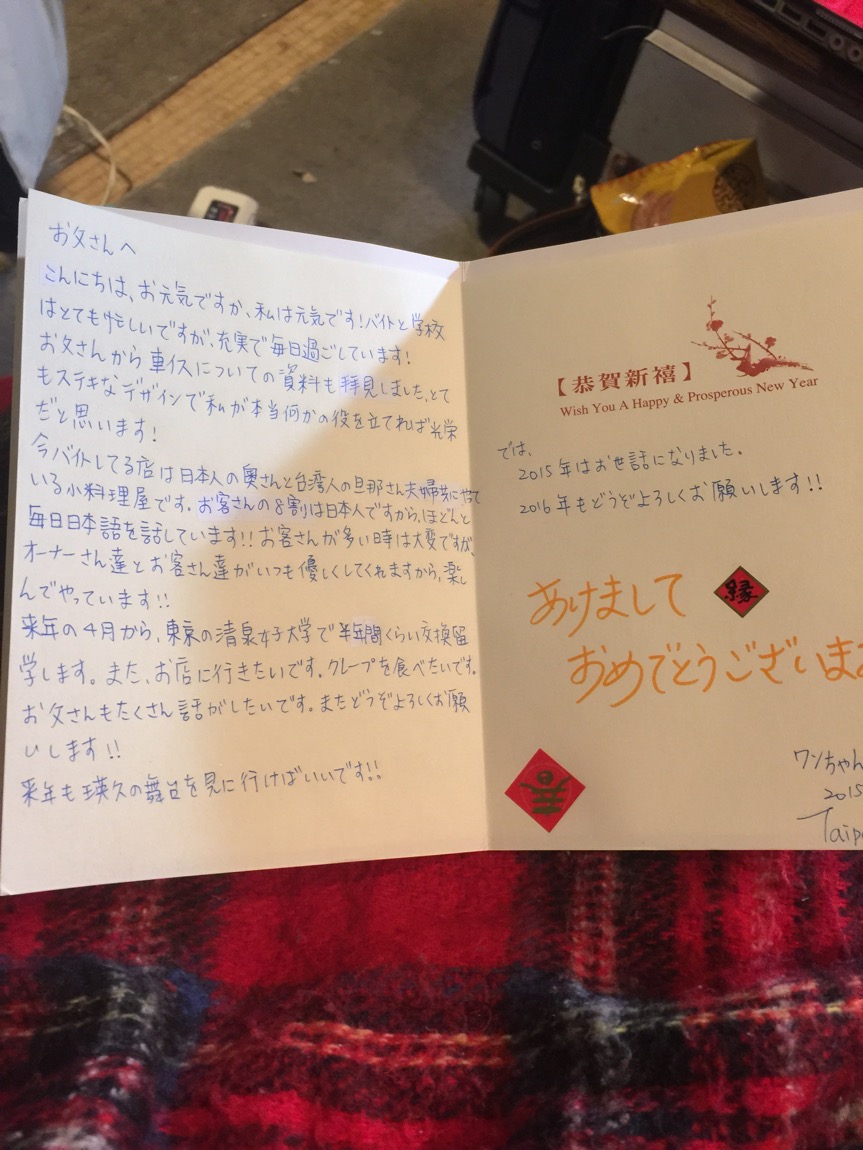 お父さんへ
こんにちは、お元気ですか、私は元気です!バイトと学校
はとても忙しいですが、充実で毎日過ごしています!
お父さんから車イスについての資料も拝見しました、とて
もステキなデザインで私が本当何かの役を立てれば光栄
だと思います!
今バイトしてる店は日本人の奥さんと台湾人の旦那さん夫婦共にやって
いる小料理屋です。お客さんの8割は日本人ですから、ほどんと
毎日日本語を話しています!!お客さんが多い時は大変ですが、
オーナーさん達とお客さん達がいつも優しくしてくれますから、楽し
んでやっています!!
来年の4月から、東京の清泉女子大学で半年間くらい交換留
学します。また、お店に行きたいです。クレープを食べたいです。
お父さんもたくさん話がしたいです。またどうぞよろしくお願
いします!!
来年も瑛久の舞台を見に行けばいいです!!
【恭賀新禧】
Wish You A Happy & Prosperous New Year
では、
2015年はお世話になりました。
2016年もどうぞよろしくお願いします!!
あけまして
縁
おめでとうございま
春
ワンちゃん
2015
Taip